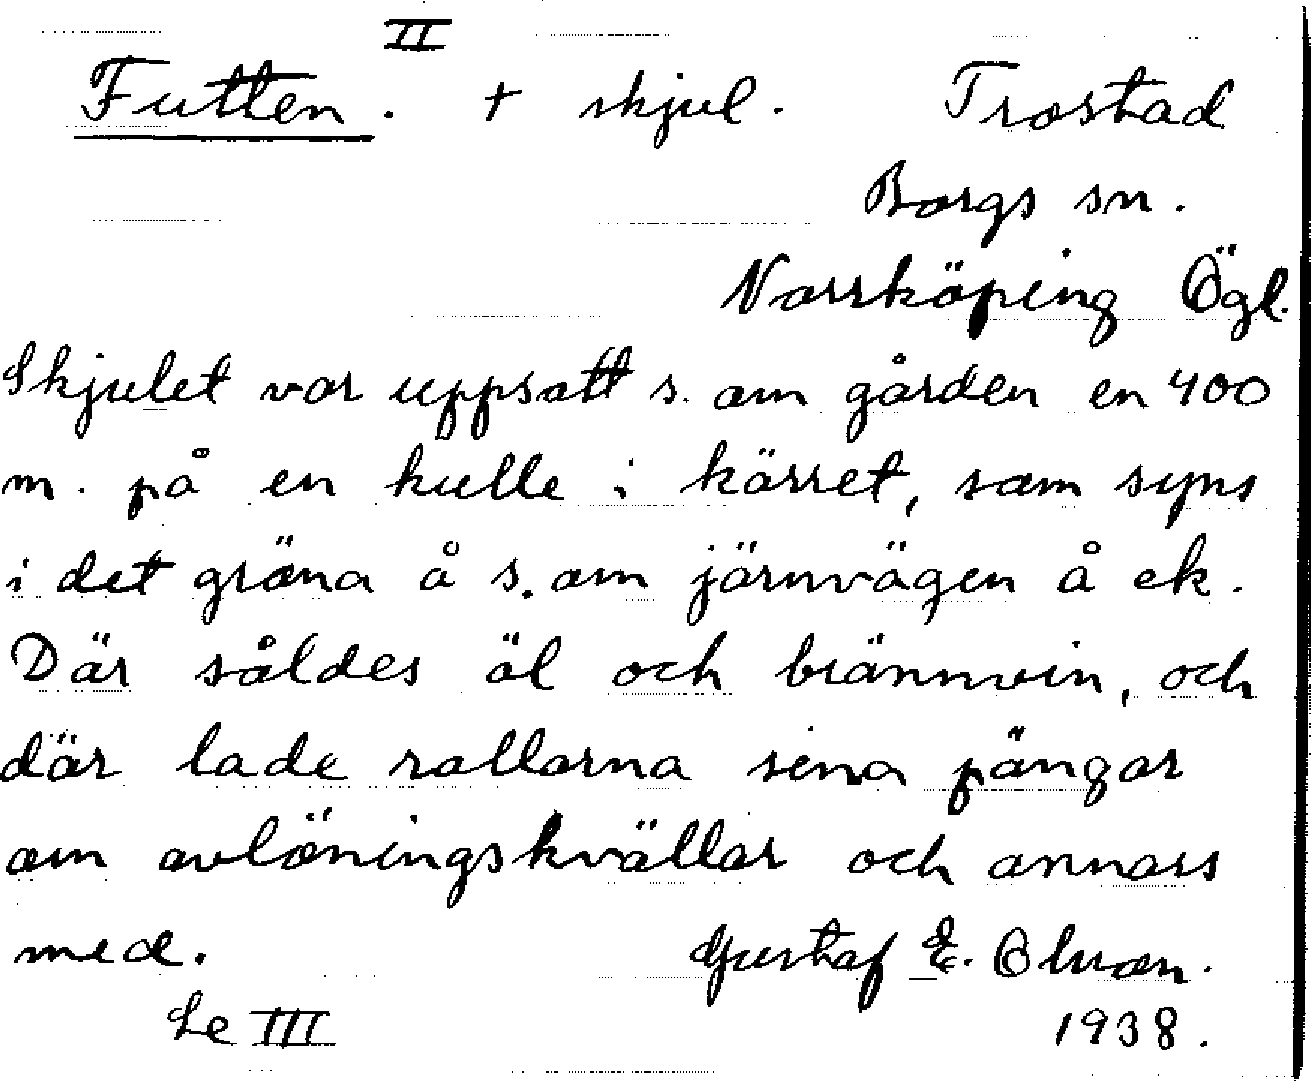 II
Futten. + skjul. Trostad
Borgs sn.
Norrköping Ögl.
Skjulet var uppsatt s. om gården en 400
m. på en kulle i kärret, som syns
i det gröna å s. om järnvägen å ek.
Där såldes öl och brännvin, och
där lade rallarna sina pängar
om avlöningskvällar och annars
med. Gustaf E. Olson.
Se III 1938.